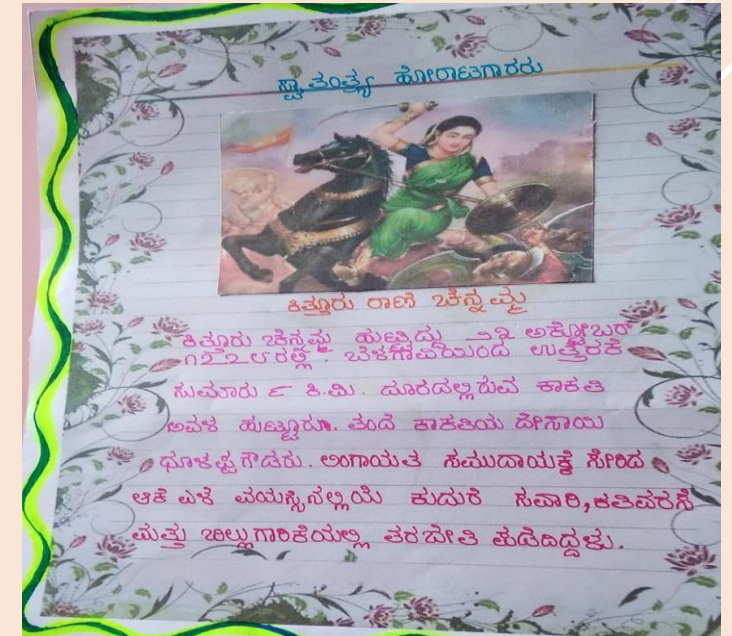 ಸ್ವಾತಂತ್ರ್ಯ ಹೋರಾಟಗಾರರು
ಕಿತ್ತೂರು ರಾಣಿ ಚೆನ್ನಮ್ಮ
ಕಿತ್ತೂರು ಚೆನ್ನಮ್ಮ ಹುಟ್ಟಿದ್ದು ೨೩ ಅಕ್ಟೋಬರ್
೧೭೭೮ರಲ್ಲಿ. ಬೆಳಗಾವಿಯಿಂದ ಉತ್ತರಕೆ
ಸುಮಾರು ೯ ಕಿ.ಮಿ. ದೂರದಲ್ಲಿರುವ ಕಾಕತಿ
ಅವಳ ಹುಟ್ಟೂರೂ. ತಂದೆ ಕಾಕತಿಯ ದೇಸಾಯಿ
ಧೂಳಪ್ಪಗೌಡರು. ಲಿಂಗಾಯತ ಸಮುದಾಯಕ್ಕೆ ಸೇರಿದ
ಆಕೆ ಎಳೆ ವಯಸ್ಸಿನಲ್ಲಿಯೆ ಕುದುರೆ ಸವಾರಿ,ಕತಿವರಸೆ
ಮತ್ತು ಬಿಲ್ಲುಗಾರಿಕೆಯಲ್ಲಿ ತರಬೇತಿ ಪಡೆದಿದ್ದಳು.